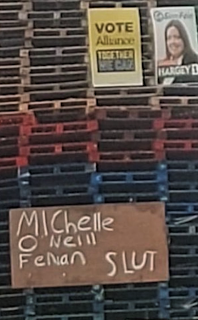 VOTE
Alliance
TOGETHER
WE CAN
HARGEY 1
MIChelle
O'Neill
FeNian SLUT